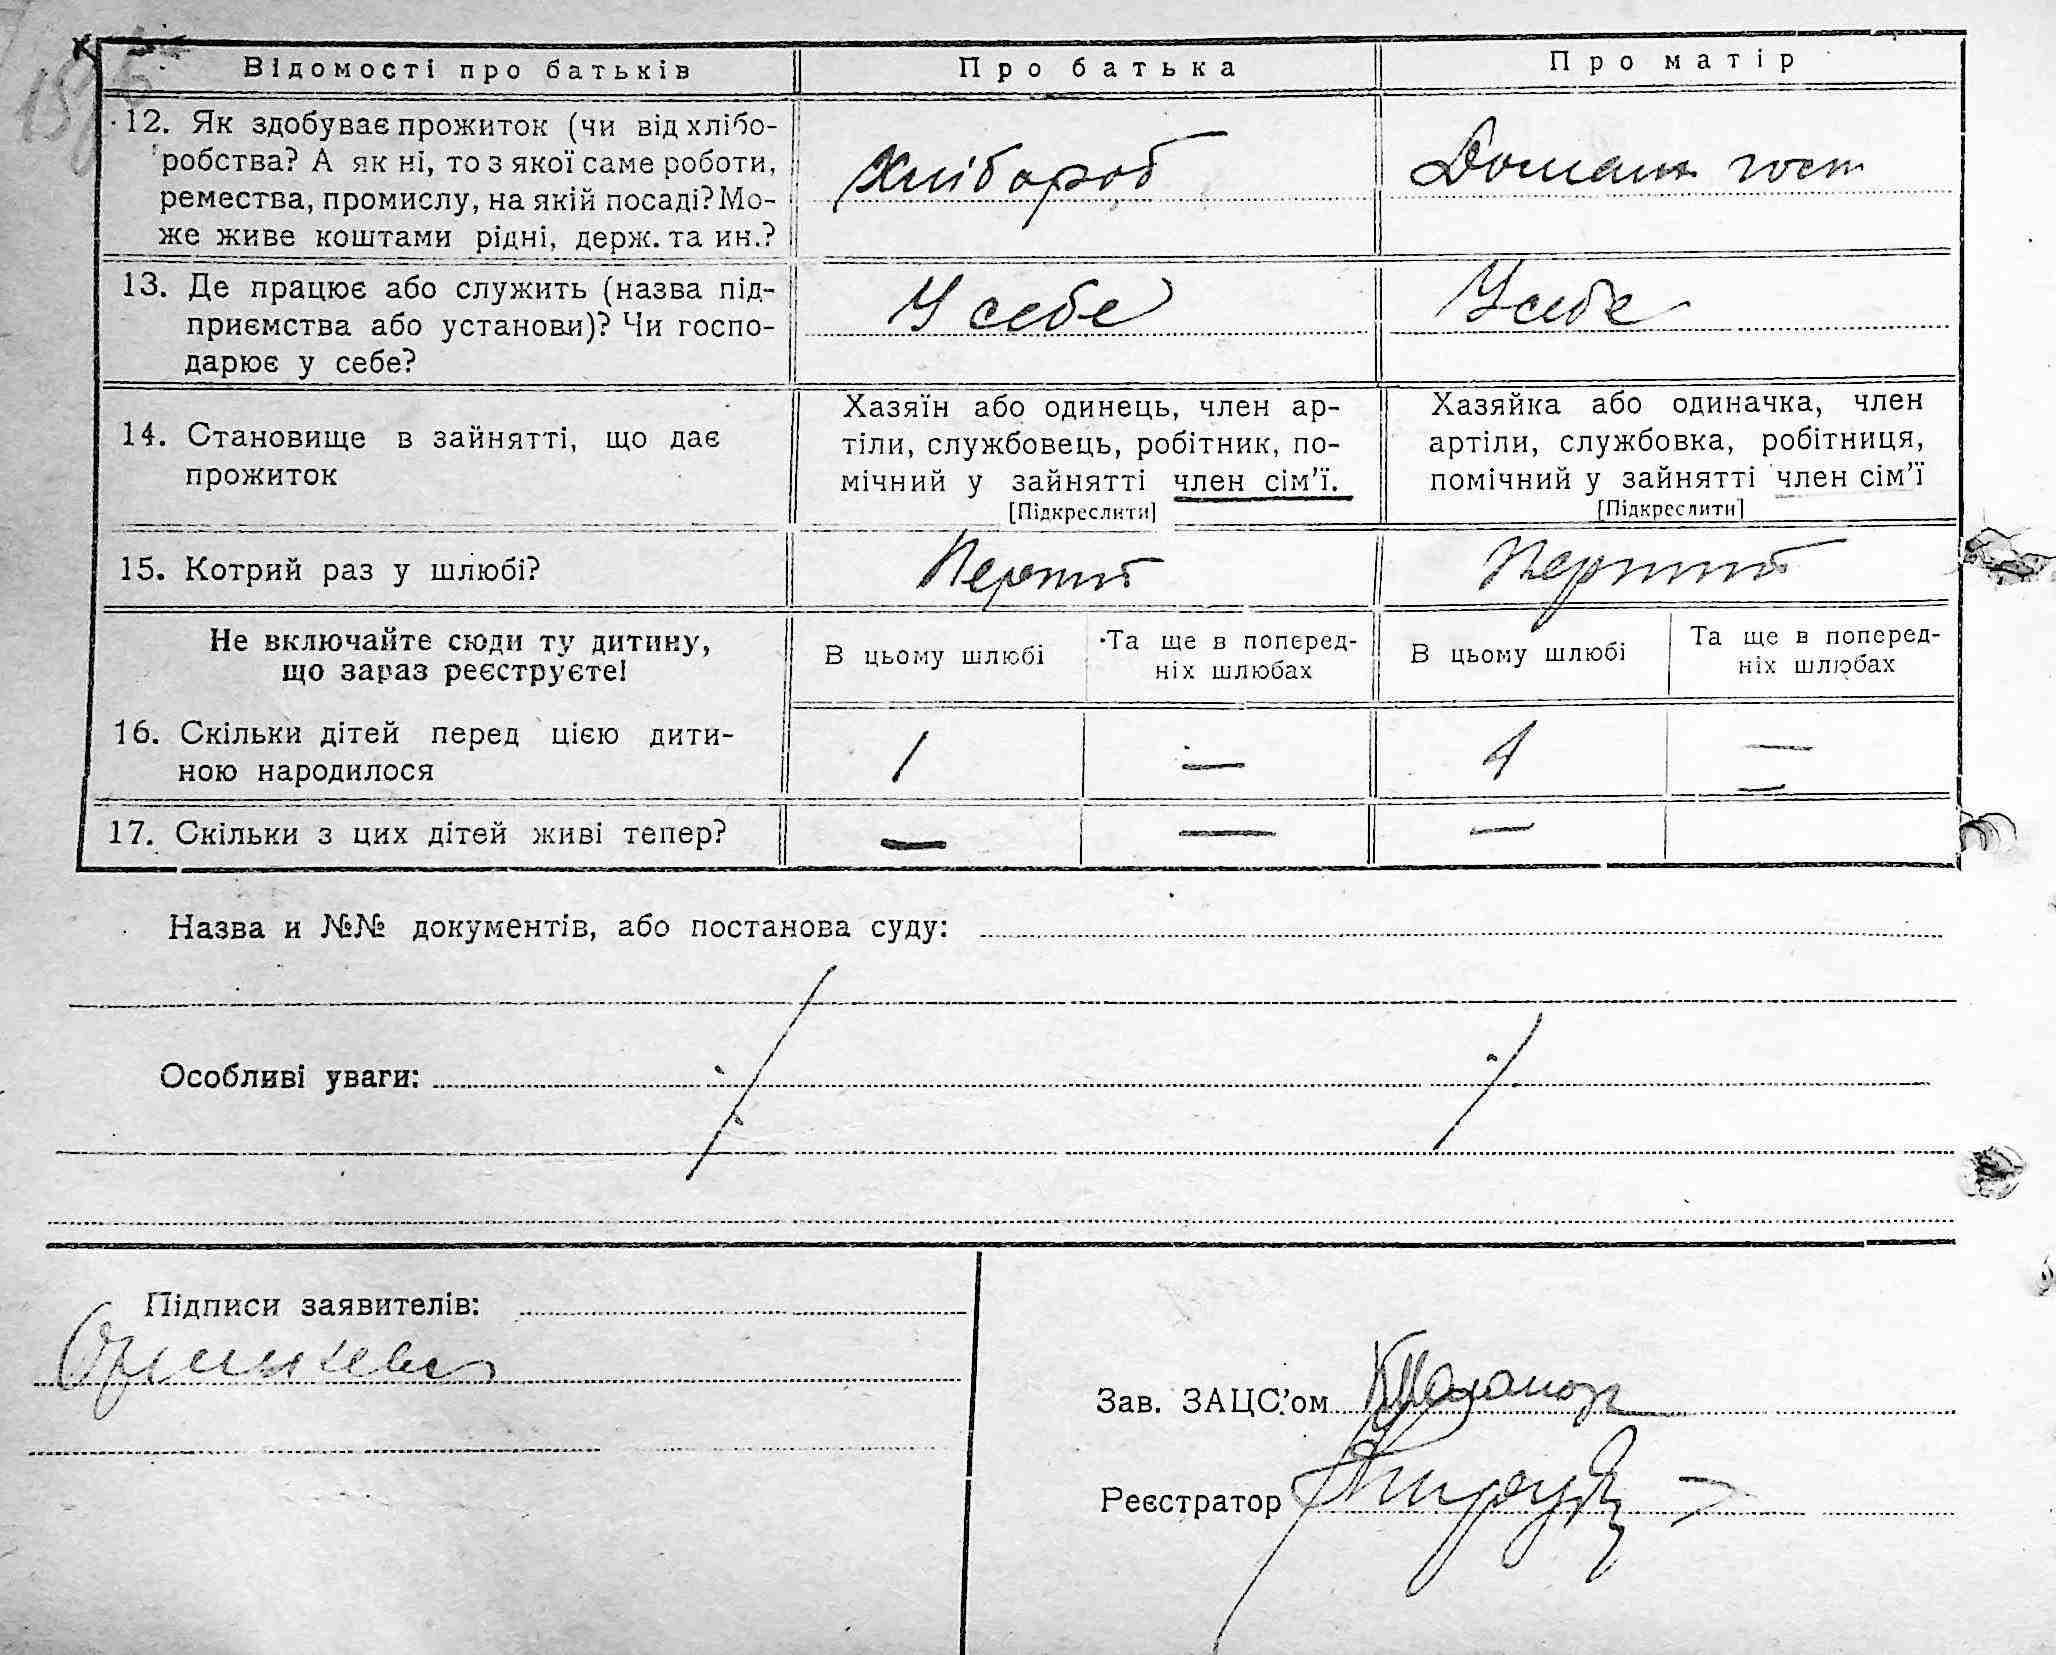 Відомості про батьків
Про батька
Про матір
12. Як здобуває прожиток (чи від хлібо-
робства? А як ні, то з якої саме роботи,
ремества, промислу, на якій посаді? Мо-
же живе коштами рідні, держ. та ин.?
Хлібороб
Домашн госп
13. Де працює або служить (назва під-
приємства або установи)? Чи госпо-
дарює у себе?
У себе
У себе
14. Становище в зайнятті, що дає
прожиток
Хазяїн або одинець, член ар-
тіли, службовець, робітник, по-
мічний у зайнятті член сім'ї.
[Підкреслити]
Хазяйка або одиначка, член
артіли, службовка, робітниця,
помічний у зайнятті член сім'ї
[Підкреслити]
15. Котрий раз у шлюбі?
Перший
Перший
Не включайте сюди ту дитину,
що зараз реєструєте!
В цьому шлюбі
Та ще в поперед-
ніх шлюбах
В цьому шлюбі
Та ще в поперед-
ніх шлюбах
16. Скільки дітей перед цією дити-
ною народилося
1
—
1
—
17. Скільки з цих дітей живі тепер?
—
—
—
—
Назва и №№ документів, або постанова суду:
Особливі уваги:
Підписи заявителів:
Зав. ЗАЦС'ом
Реєстратор